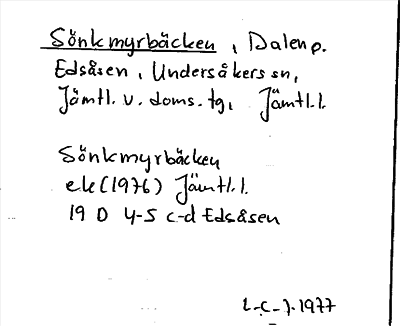 Sönkmyrbäcken, Dalen p.
Edsåsen, Undersåkers sn,
Jämtl. v. doms. tg, Jämtl. l.
Sönkmyrbäcken
ek (1976) Jämtl. l.
19 D 4-5 c-d Edsåsen
1977